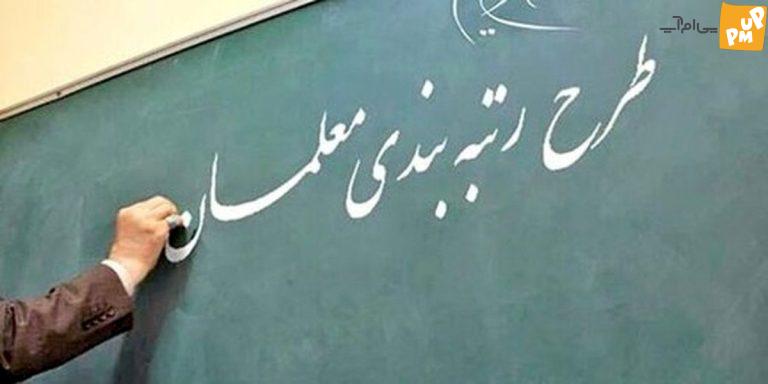 طرح رتبه بندی معلمان
پی‌ام‌آپ
UP
PM